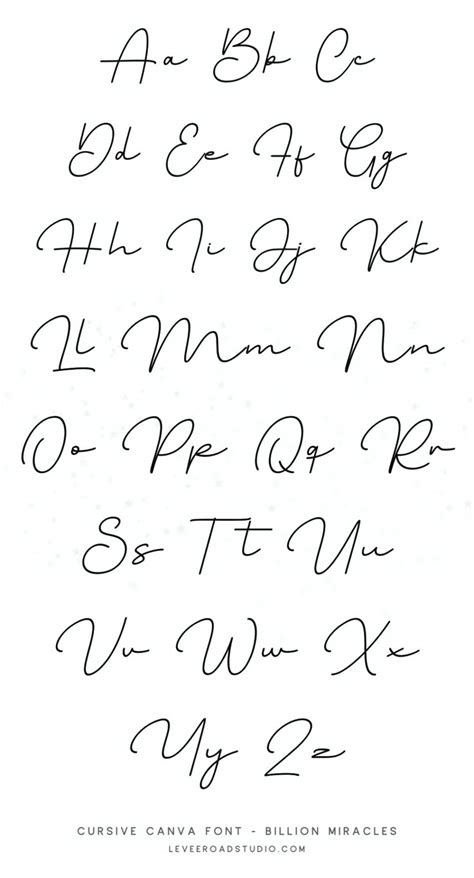 Aa Bb Cc
Dd Ee Ff Gg
Hh Ii Jj Kk
Ll Mm Nn
Oo Pp Qq Rr
Ss Tt Uu
Vv Ww Xx
Yy Zz
CURSIVE CANVA FONT - BILLION MIRACLES
LEVEEROADSTUDIO.COM